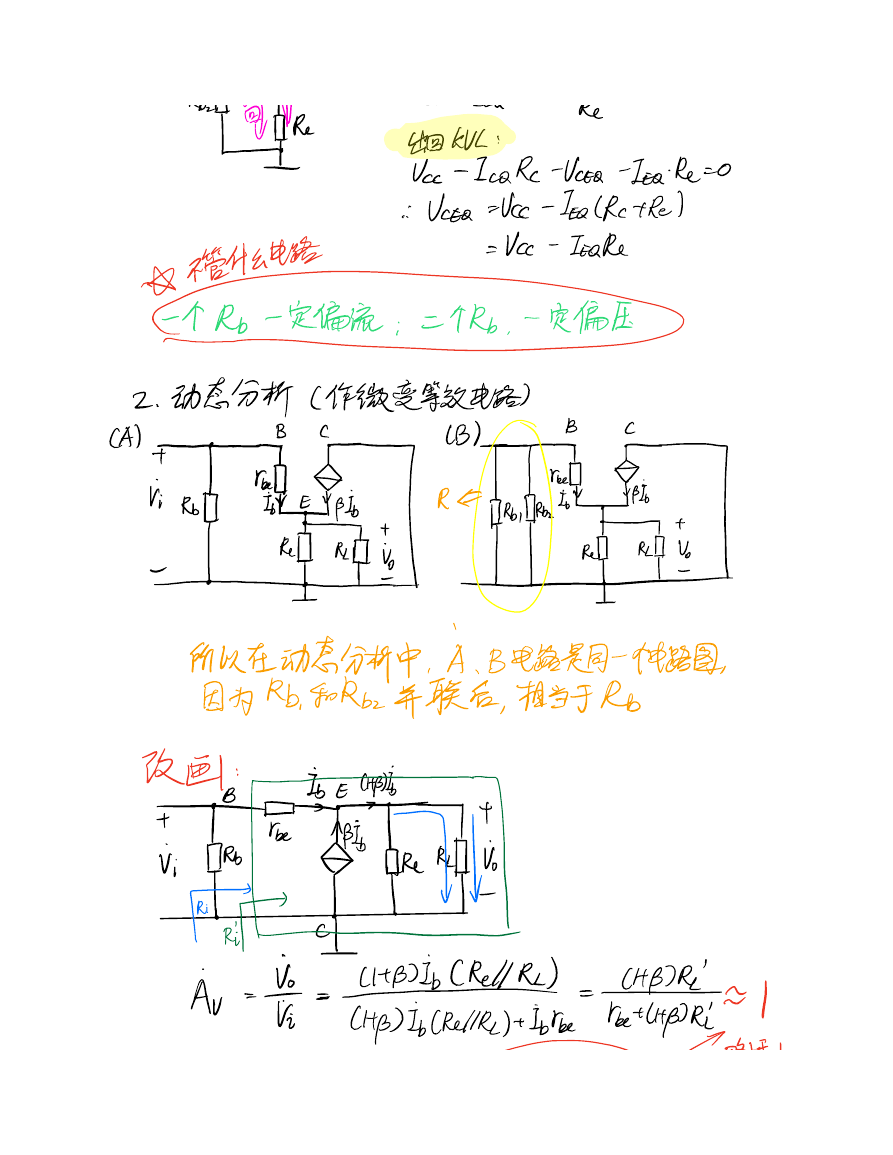 Re
Re
出回 KVL:
Vcc - ICQ Rc - VCEQ - IEQ·Re = 0
∴ VCEQ = Vcc - IEQ(Rc+Re)
= Vcc - IEQRe
☆ 不管什么电路
一个 Rb 一定偏流; 二个Rb, 一定偏压
2. 动态分析 (作微变等效电路)
(A) B C
+ V̇i − Rb rbe İb E βİb Re RL + V̇o −
(B) B C
R ← Rb1 Rb2 rbe İb βİb Re RL + V̇o −
所以在动态分析中, A、B电路是同一个电路图,
因为 Rb1 和 Rb2 并联后, 相当于 Rb
改画:
B İb E (1+β)İb
+ V̇i Rb rbe βİb Re RL + V̇o −
Ri Ri' C
ȦV = V̇o/V̇i = (1+β)İb(Re//RL) / ((1+β)İb(Re//RL)+İbrbe) = (1+β)RL' / (rbe+(1+β)RL') ≈ 1